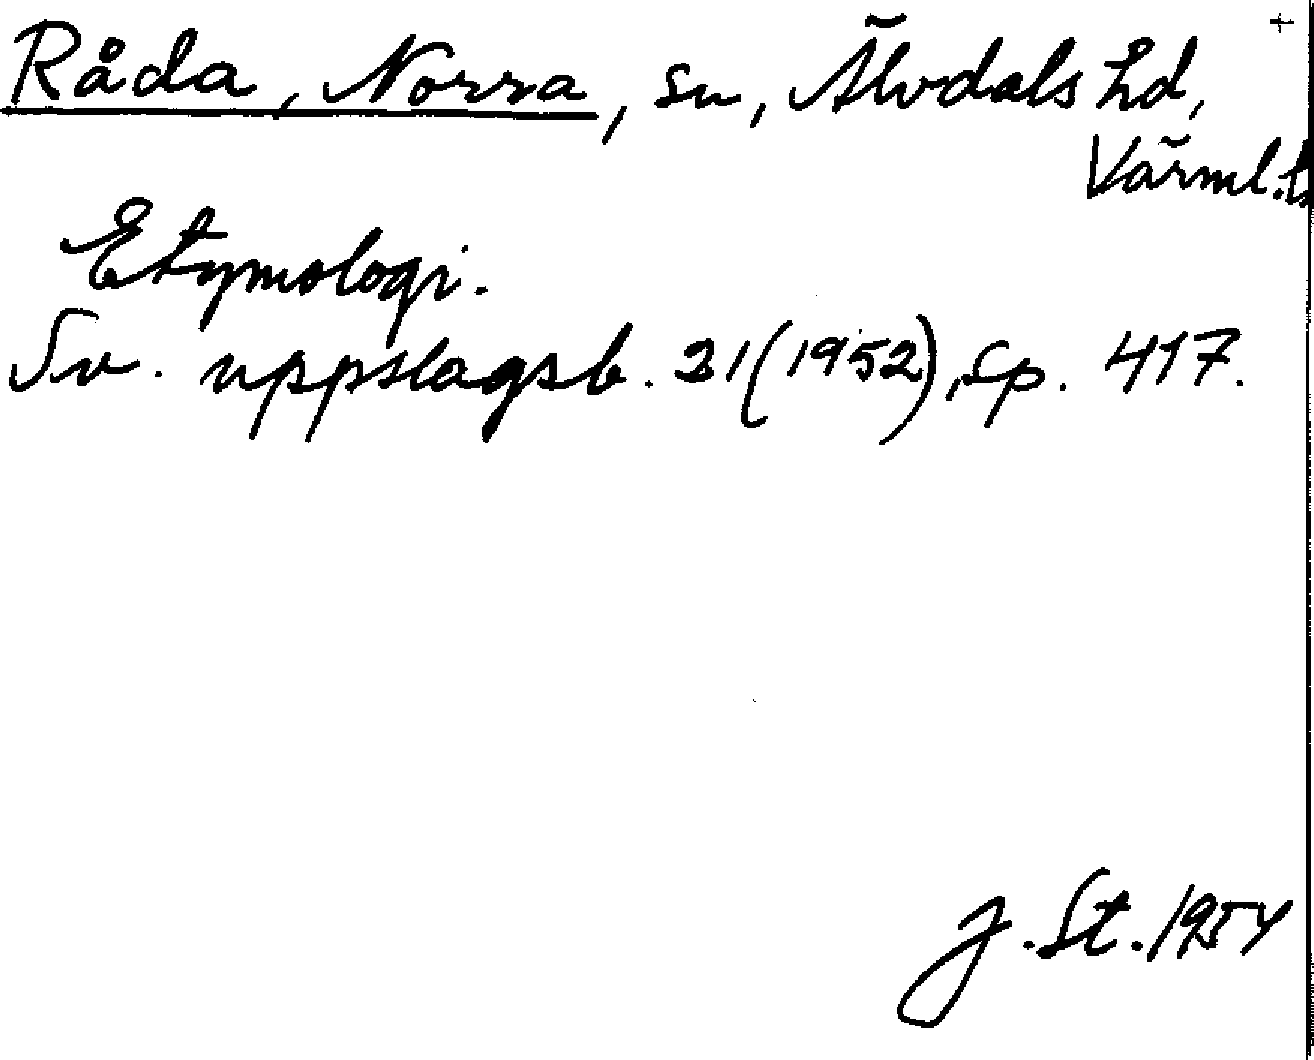 +
Råda, Norra, sn, Älvdals hd,
Värml. l.
Etymologi.
Sv. uppslagsb. 21(1952), sp. 417.
J. St. 1954